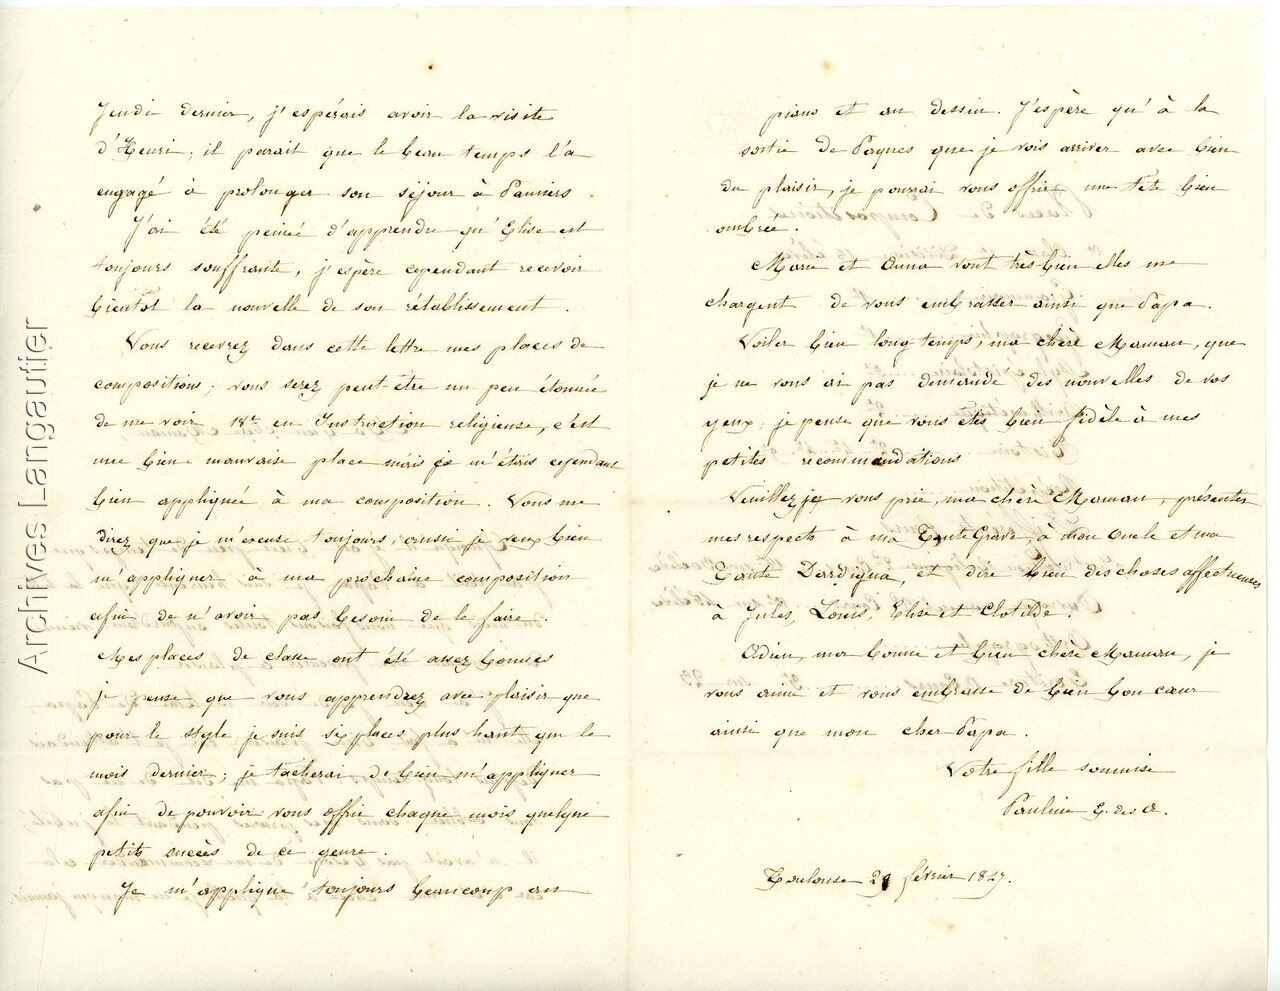 Jeudi dernier, j'espérais avoir la visite
d'Henri; il parait que le beau temps l'a
engagé à prolonger son séjour à Pamiers
J'ai été peinée d'apprendre qu'Elise est
toujours souffrante, j'espère cependant recevoir
bientot la nouvelle de son rétablissement.
Vous recevrez dans cette lettre mes places de
compositions; vous serez peut-être un peu étonnée
de me voir 18e en Instruction religieuse, c'est
une bien mauvaise place mais je m'étais cependant
bien appliquée à ma composition. Vous me
direz que je m'excuse toujours; aussi je veux bien
m'appliquer à ma prochaine composition
afin de n'avoir pas besoin de le faire.
Mes places de classe ont été assez bonnes
je pense que vous apprendrez avec plaisir que
pour le style je suis six places plus haut que le
mois dernier; je tacherai de bien m'appliquer
afin de pouvoir vous offrir chaque mois quelque
petits succès de ce genre.
Je m'applique toujours beaucoup au
piano et au dessin. J'espère qu'à la
sortie de Paques que je vois arriver avec bien
du plaisir, je pourrai vous offrir une tete bien
ombrée.
Marie et Anna vont très-bien elles me
chargent de vous embrasser ainsi que Papa.
Voilà bien long-temps, ma chère Maman, que
je ne vous ai pas demandé des nouvelles de vos
yeux; je pense que vous etes bien fidèle à mes
petites recommandations
Veuillez je vous prie, ma chère Maman, présenter
mes respects à ma Tante Grave, à mon Oncle et ma
Tante Dardigna, et dire bien des choses affectueuses
à Jules, Louis, Elise et Clotilde.
Adieu, ma bonne et bien chère Maman, je
vous aime et vous embrasse de bien bon cœur
ainsi que mon cher Papa.
Votre fille soumise
Pauline E. des A.
Toulouse février 1847.
Archives Langautier